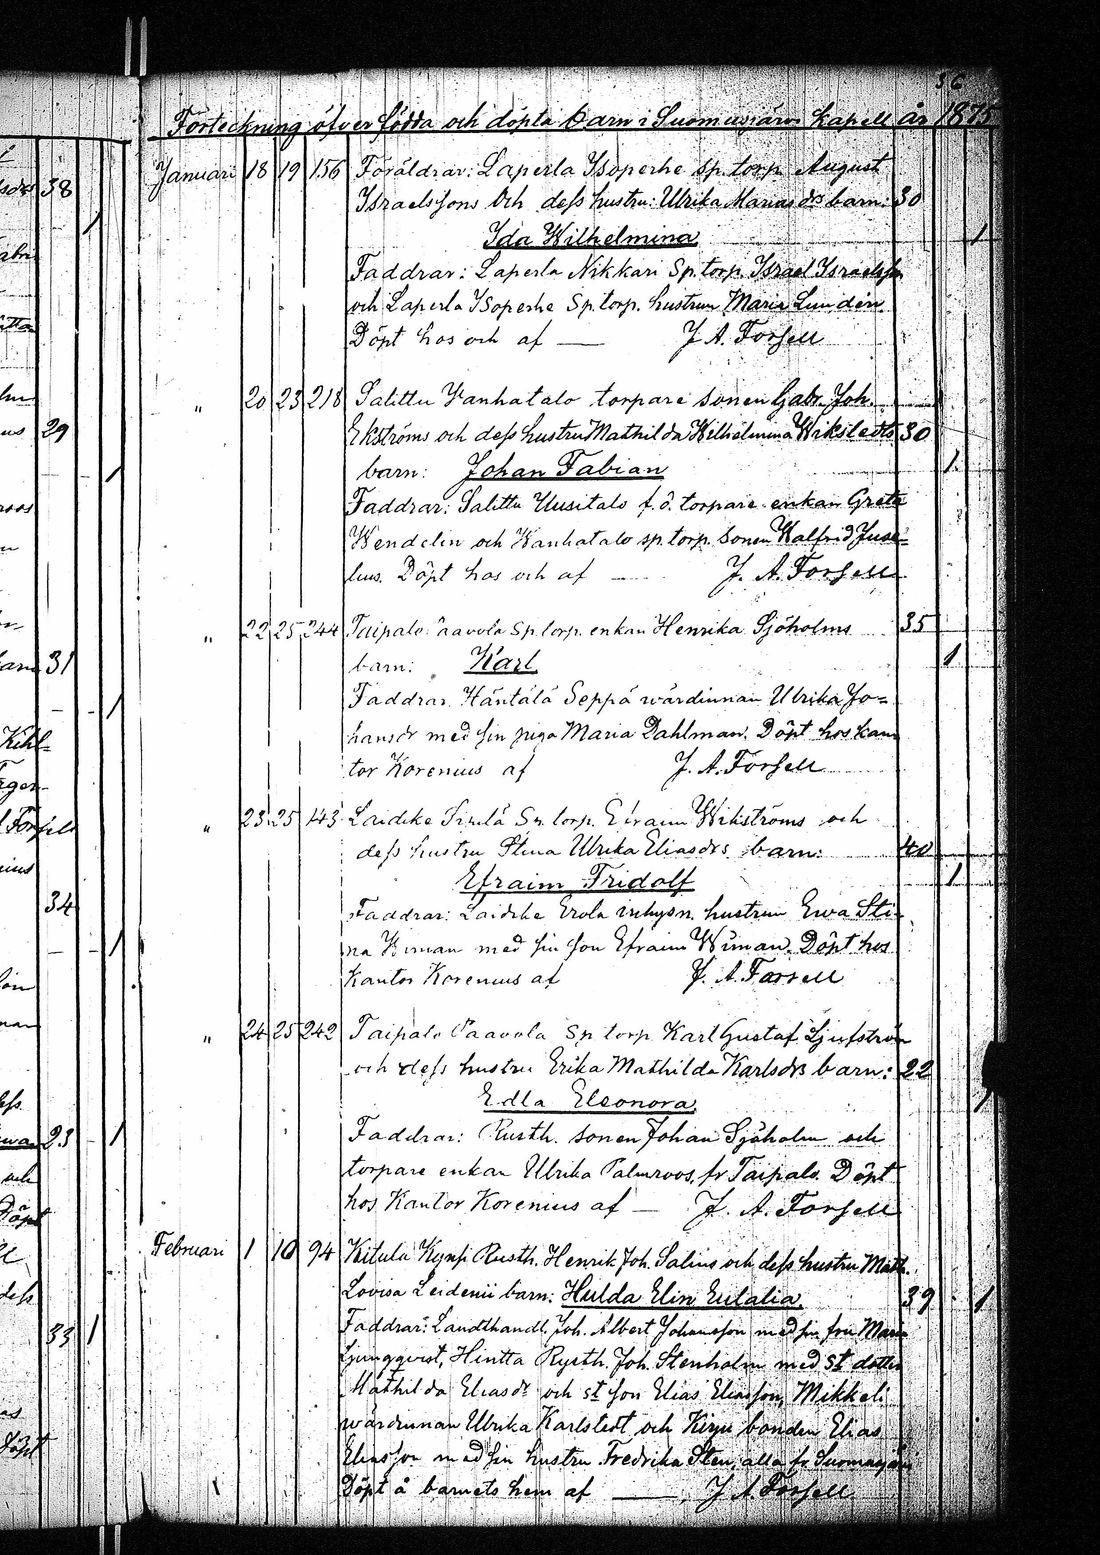 36
Förteckning öfver födda och döpta barn i Suomusjärvi kapell år 1875
Januari 18 19 156 Föräldrar: Laperla Isoperhe sp. torp. August
Israelssons och dess hustru: Ulrika Marias drs barn: 30
Ida Wilhelmina 1
Faddrar: Laperla Nikkari Sp. torp. Israel Israelsson
och Laperla Isoperhe Sp. torp. hustrun Maria Lundén
Döpt hos och af — J. A. Forsell
" 20 23 218 Salittu Wanhatalo torpare sonen Gabr. Joh.
Ekströms och dess hustru Mathilda Wilhelmina Wikstedts 30
barn: Johan Fabian 1
Faddrar: Salittu Uusitalo f. d. torpare enkan Greta
Wendelin och Wanhatalo sp. torp. sonen Walfrid Juse-
lius. Döpt hos och af — J. A. Forsell
" 22 25 244 Taipalo Paavola Sp. torp. enkan Henrika Sjöholms 35
barn: Karl 1
Faddrar Häntälä Seppä wärdinnan Ulrika Jo-
hansdr med sin piga Maria Dahlman. Döpt hos kan
tor Korenius af J. A. Forsell
" 23 25 143 Laidike Sp. torp. Efraim Wikströms och
dess hustru Stina Ulrika Eliasdrs barn: 40
Efraim Fridolf 1
Faddrar: Laidike Erola inhysn. hustrun Ewa Sti-
na Wiman med sin son Efraim Wiman. Döpt hos
Kantor Korenius af J. A. Forsell
" 24 25 242 Taipalo Paavola Sp torp Karl Gustaf Ljufström
och dess hustru Erika Mathilda Karlsdrs barn: 22
Edla Eleonora 1
Faddrar: Rusth. sonen Johan Sjöholm och
torpare enkan Ulrika Palmroos, fr Taipalo. Döpt
hos Kantor Korenius af — J. A. Forsell
Februari 1 10 94 Kitula Rusth. Henrik Joh. Salins och dess hustru Math.
Lovisa Leidenii barn: Hulda Elin Eulalia. 39 1
Faddrar: Landthandl. Joh. Albert Johansson med sin fru Maria
Ljungqvist, Hintta Rusth. Joh. Stenholm med st dotter
Mathilda Eliasdr och st son Elias Eliasson, Mikkeli
wärdinnan Ulrika Karlstedt och bonden Elias
Eliasson med sin hustru Fredrika Sten, alla fr Suomusjärvi
Döpt å barnets hem af — J. A. Forsell